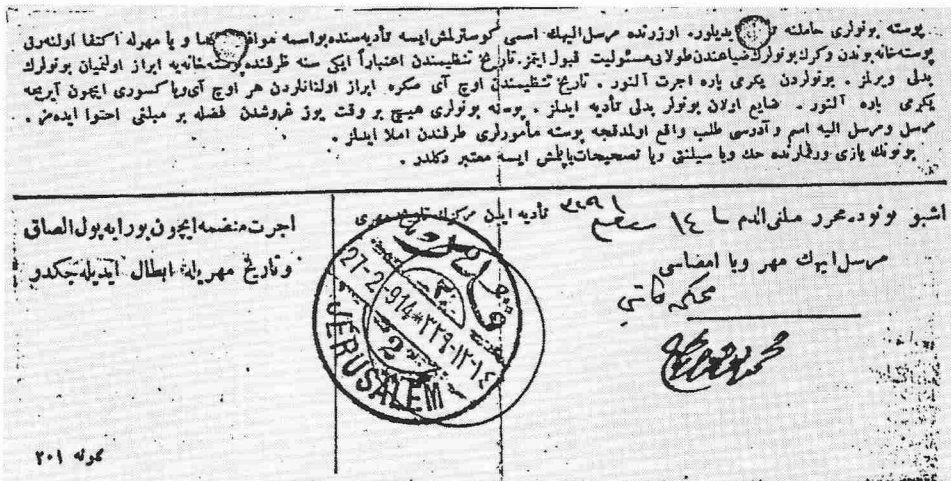 پوسته بونولری حاملنه تأدیه ایدیلور. اوزرنده مرسل الیهك اسمی کوسترلمش ایسه تأدیه سنده بو اسمه موافق امضا و یا مهرله اکتفا اولنه رق
پوسته خانه بوندن و کرك بونولرك ضیاعندن طولایی مسئولیت قبول ایتمز. تاریخ تنظیمندن اعتباراً ایکی سنه ظرفنده پوسته خانه یه ابراز اولنمیان بونولرك
بدلی ویرلمز. بونولردن یکرمی پاره اجرت آلنور. تاریخ تنظیمندن اوچ آی صکره ابراز اولنانلردن هر اوچ آی ویا کسوری ایچون آیریجه
یکرمی پاره آلنور. ضایع اولان بونولر بدلی تأدیه ایدلمز. پوسته بونولری هیچ بر وقت یوز غروشدن فضله بر مبلغی احتوا ایده مز.
مرسل ومرسل الیه اسم و آدرسی طلب واقع اولدقجه پوسته مأمورلری طرفندن املا ایدیلور.
بونونك یازی ورقملرنده حك ویا سیلنتی ویا تصحیحات یاپلمش ایسه معتبر دکلدر.
اشبو بونوده محرر مبلغی آلدم ١٤
تأدیه ایدن مرکزك تاریخ مهری
اجرت منضمه ایچون بورایه پول الصاق
وتاریخ مهریله ابطال ایدیله جکدر
مرسل الیهك مهر ویا امضاسی
محکمه کاتبی
27-2-914*٣٢٩-١٢-١٤
2
JERUSALEM
نمونه ٢٠١